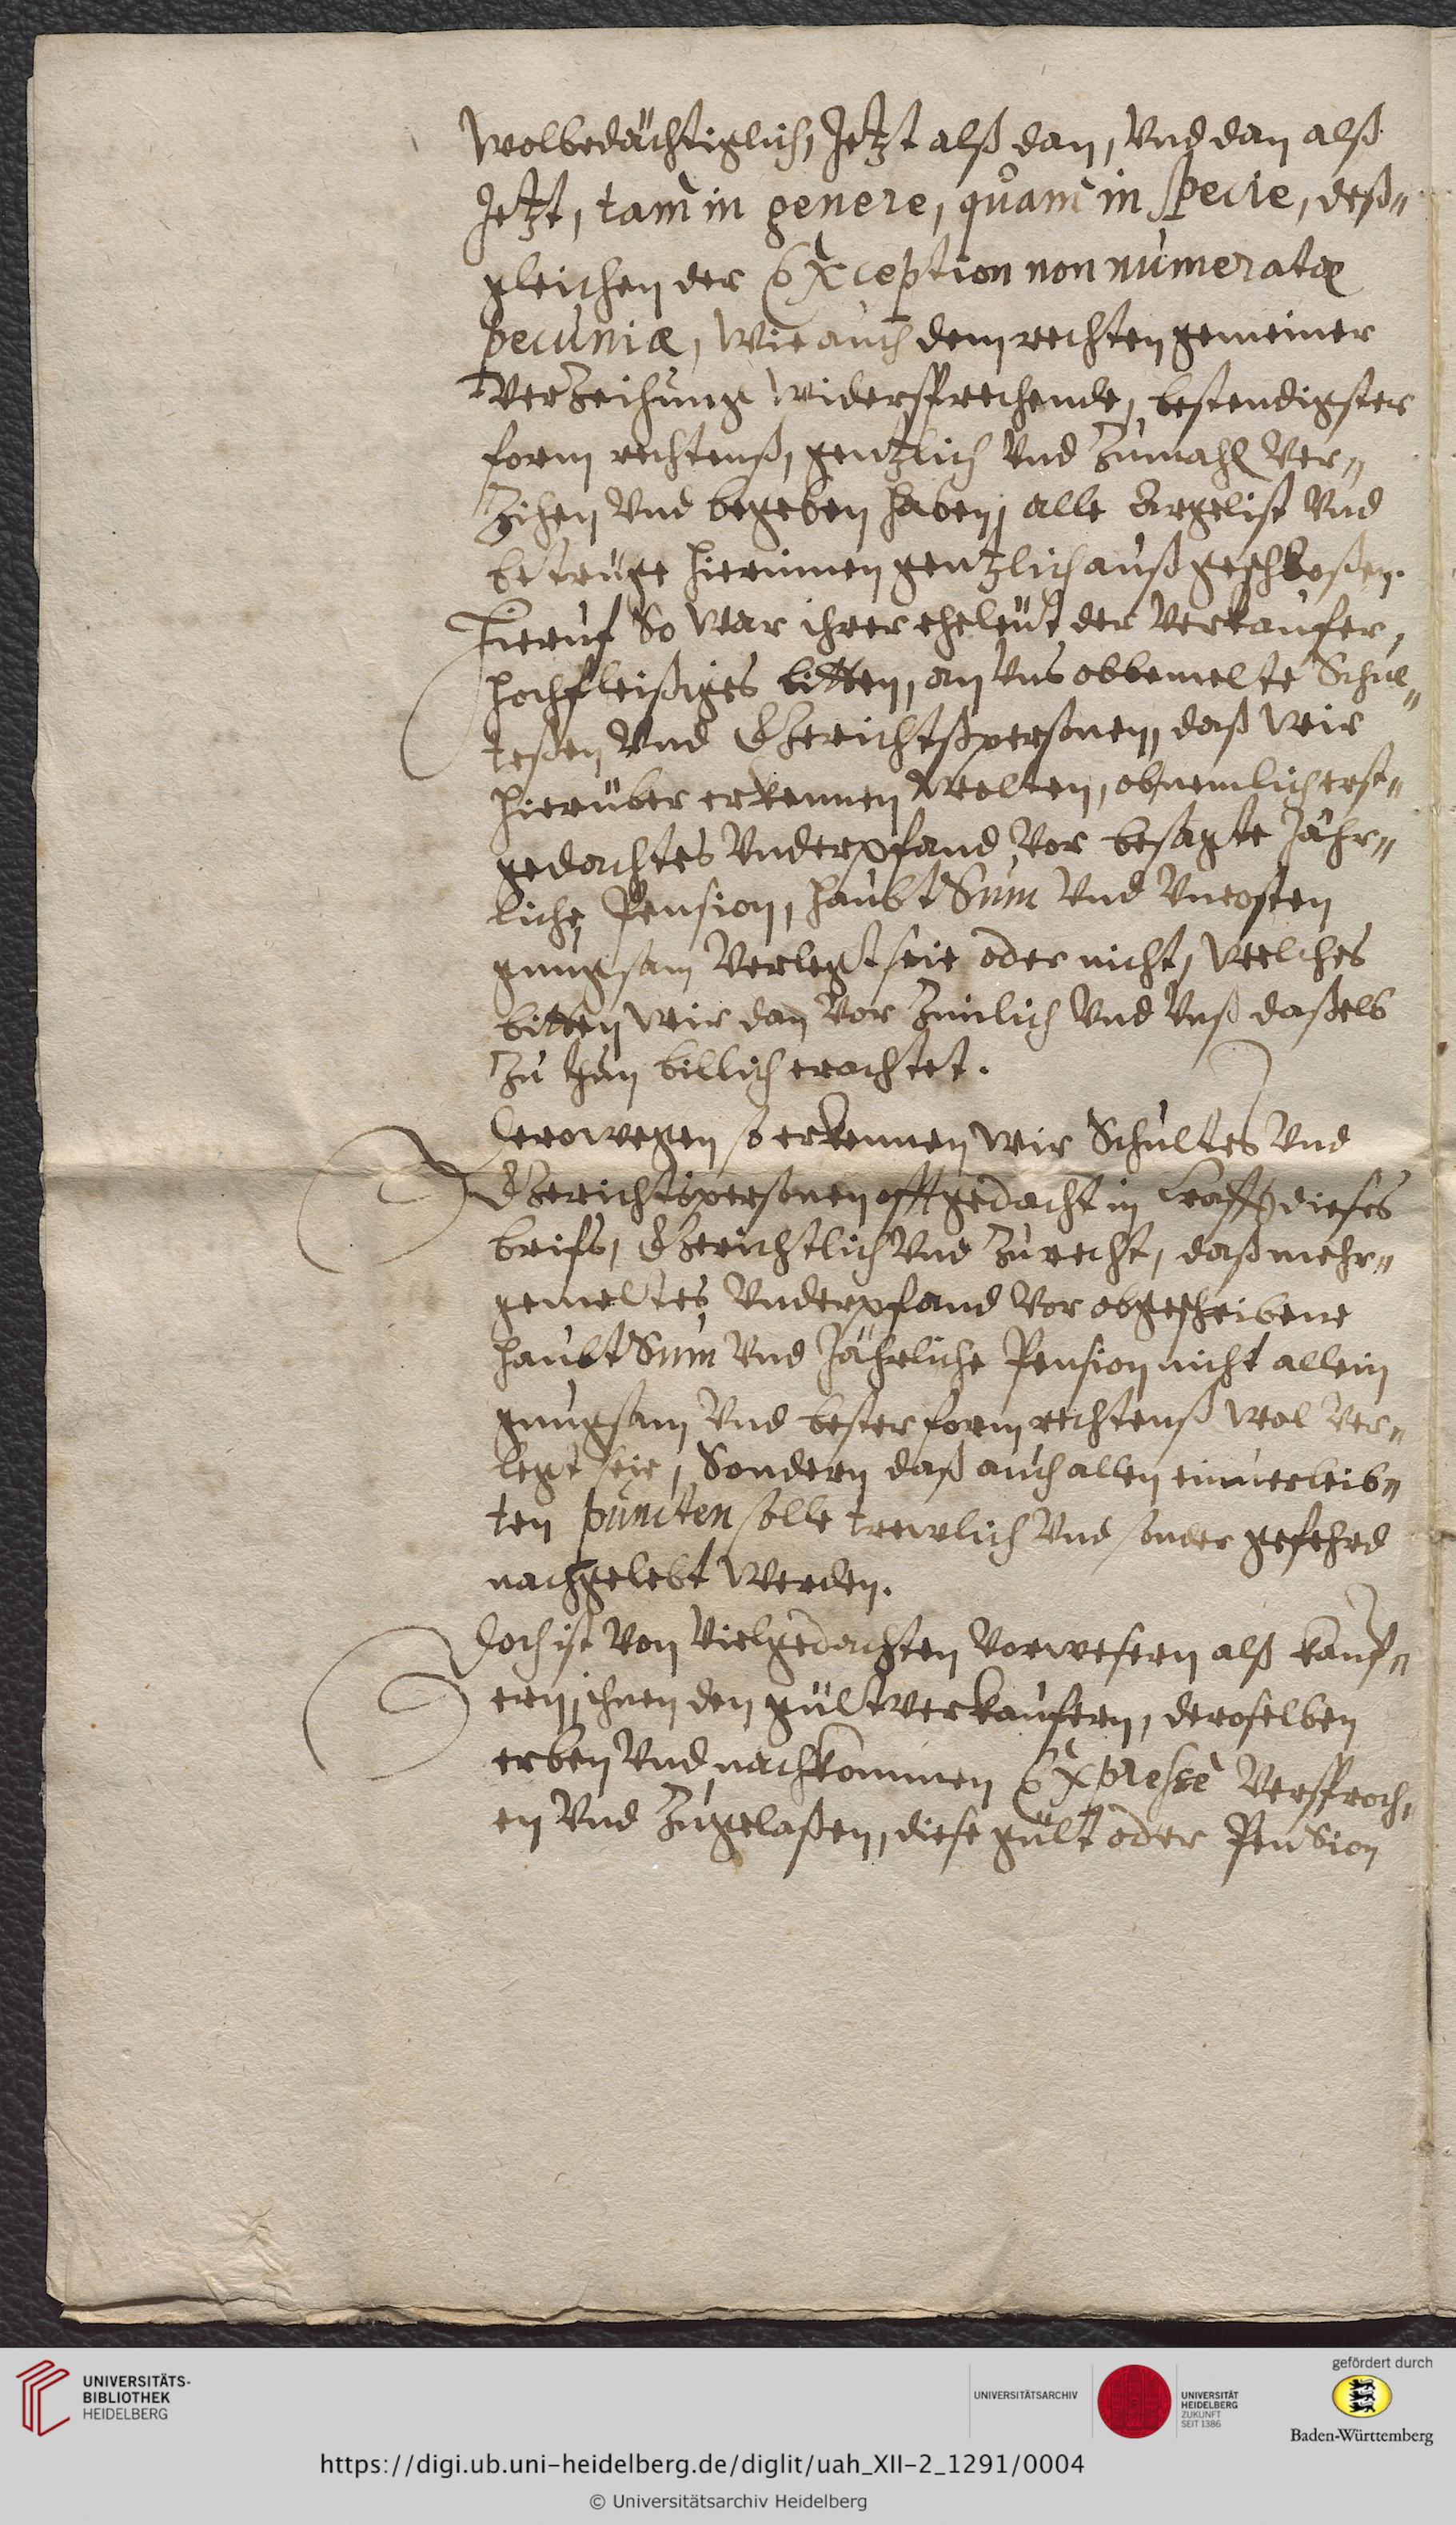 Wolbedächtiglich, Jetzt alß dan, Vnd dan alß
Jetzt, tam in genere, quam in specie, deß„
gleichen der Exception non numeratæ
pecuniæ, Wie auch dem rechten gemeiner
Verzeihung widersprechende, bestendigster
form rechtenß, gentzlich Vnd Zumahl Ver„
Zihen Vnd begeben haben, alle Argelist Vnd
betruge hierinnen gentzlich außgeschloßen.
Hieruf So war ihrer eheleut der Verkaufer,
hochfleißiges bitten, an Vns obbemelte Schul„
teßen Vnd Gerichtspersonen, daß Wir
hierüber erkennen Wolten, ob nemlich erst„
gedachtes Vnderpfand, Vor besagte Jähr„
liche Pension, haubt Sum Vnd Vncosten
gnugsam Verlegt seie oder nicht, Welches
bitten Wir dan Vor Zimlich Vnd Vnß daßelb
Zu thun billich erachtet.
Derowegen so erkennen Wir Schultes Vnd
Gerichtspersonen offtgedacht in krafft dieses
briefs, Gerichtlich Vnd Zu recht, daß mehr„
gemeltes Vnderpfand Vor obgeschribene
haubt Sum Vnd Jährliche Pension nicht allein
gnugsam Vnd bester form rechtenß Wol Ver„
legt seie, Sondern daß auch allen einverleib„
ten puncten solle trewlich Vnd sonder gefehrd
nachgelebt Werden.
Doch ist Von Vielgedachten Vorwesern alß kauf„
ern, ihnen den gültverkaufern, deroselben
erben Vnd nachkommen Expresse Versproch„
en Vnd Zugelaßen, diese gült oder Pension
UNIVERSITÄTS-
BIBLIOTHEK
HEIDELBERG
UNIVERSITÄTSARCHIV
UNIVERSITÄT
HEIDELBERG
ZUKUNFT
SEIT 1386
gefördert durch
Baden-Württemberg
https://digi.ub.uni-heidelberg.de/diglit/uah_XII-2_1291/0004
© Universitätsarchiv Heidelberg